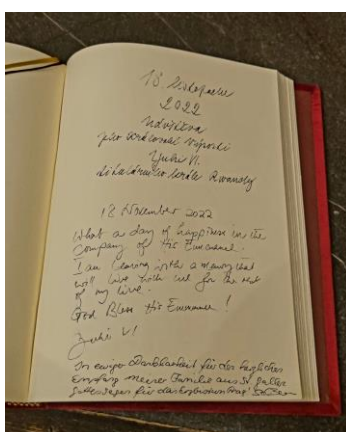 18. listopadu
2022
návštěva
Jeho královské
Yuhi VI.
krále Rwandy
18 November 2022
What a day of happiness in the
Company of His Eminence.
I am leaving with a memory that
will live with me for the rest
of my live.
God Bless His Eminence!
Yuhi VI
In ewiger Dankbarkeit für den herzlichen
Empfang meiner Familie aus St. Gallen
Gottes Segen für das